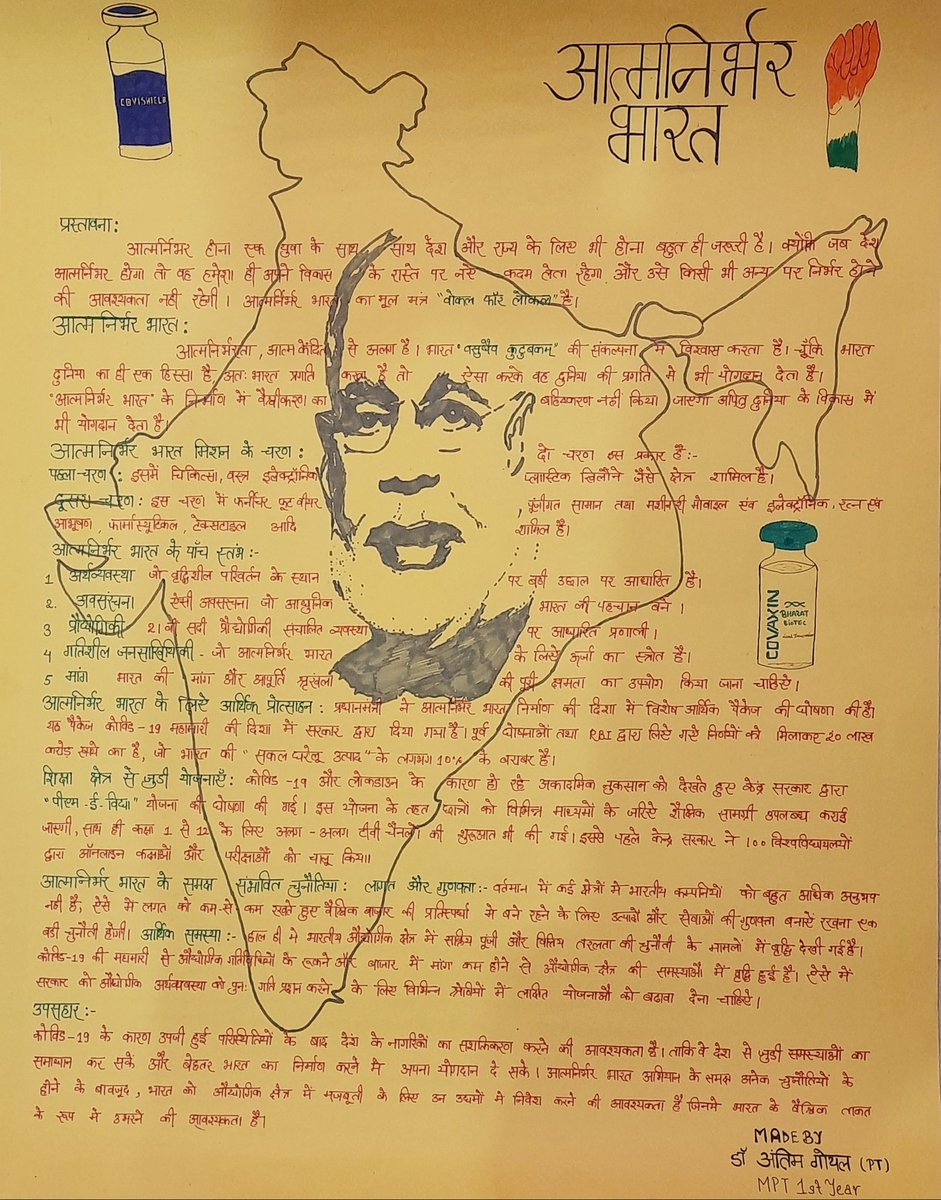 COVISHIELD
आत्मनिर्भर
भारत
प्रस्तावना:
आत्मर्निभर होना एक युवा के साथ साथ देश और राज्य के लिए भी होना बहुत ही जरूरी है। क्योंकि जब देश
आत्मनिर्भर होगा तो वह हमेशा ही अपने विकास के रास्ते पर नए कदम लेता रहेगा और उसे किसी भी अन्य पर निर्भर होने
की आवश्यकता नही रहेगी। आत्मनिर्भर भारत का मूल मंत्र "वोकल फॉर लोकल" है।
आत्म निर्भर भारत:
आत्मनिर्भरता, आत्म केंद्रित से अलग है। भारत "वसुधैव कुटुबकम्" की संकल्पना में विश्वास करता है। चूँकि भारत
दुनिया का ही एक हिस्सा है अतः भारत प्रगति करता है तो ऐसा करके वह दुनिया की प्रगति मे भी योगदान देता है।
"आत्मनिर्भर भारत" के निर्माण में वैश्वीकरण का बहिष्करण नही किया जाएगा अपितु दुनिया के विकास में
भी योगदान देता है।
आत्मनिर्भर भारत मिशन के चरण: दो चरण इस प्रकार है:-
पहला-चरण: इसमें चिकित्सा, वस्त्र इलेक्ट्रॉनिक प्लास्टिक खिलौने जैसे क्षेत्र शामिल है।
दूसरा-चरण: इस चरण में फर्नीचर फूट वीयर, पूंजीगत सामान तथा मशीनरी मोबाइल एंव इलेक्ट्रॉनिक, रत्न एंव
आभूषण, फार्मास्यूटिकल, टेक्सटाइल आदि शामिल है।
आत्मनिर्भर भारत के पाँच स्तंभ:-
1 अर्थव्यवस्था जो वृद्धिशील परिवर्तन के स्थान पर बड़ी उछाल पर आधारित है।
2. अवसंरचना ऐसी अवसंरचना जो आधुनिक भारत की पहचान बने।
3 प्रौद्योगिकी 21वी सदी प्रौद्योगिकी संचालित व्यवस्था पर आधारित प्रणाली।
4 गतिशील जनसांख्यिकी - जो आत्मनिर्भर भारत के लिए ऊर्जा का स्त्रोत है।
5 मांग भारत की मांग और आपूर्ति श्रृंखला की पूरी क्षमता का उपयोग किया जाना चाहिए।
COVAXIN
BHARAT
BIOTEC
आत्मनिर्भर भारत के लिए आर्थिक प्रोत्साहन: प्रधानमंत्री ने आत्मनिर्भर भारत निर्माण की दिशा में विशेष आर्थिक पैकेज की घोषणा की है।
यह पैकेज कोविड-19 महामारी की दिशा में सरकार द्वारा दिया गया है। पूर्व घोषनाओं तथा RBI द्वारा लिए गए निर्णयों को मिलाकर 20 लाख
करोड़ रूपये का है, जो भारत की "सकल घरेलू उत्पाद" के लगभग 10% के बराबर है।
शिक्षा क्षेत्र से जुड़ी योजनाएँ: कोविड-19 और लोकडाउन के कारण हो रहे अकादमिक नुकसान को देखते हुए केंद्र सरकार द्वारा
"पीएम-ई-विद्या" योजना की घोषणा की गई। इस योजना के तहत छात्रों को विभिन्न माध्यमों के जरिए शैक्षिक सामग्री उपलब्ध कराई
जाएगी, साथ ही कक्षा 1 से 12 के लिए अलग-अलग टीवी चैनलों की शुरूआत भी की गई। इससे पहले केन्द्र सरकार ने 100 विश्वविद्यालयों
द्वारा ऑनलाइन कक्षाओं और परीक्षाओं को चालू किया।
आत्मनिर्भर भारत के समक्ष संभावित चुनौतियां: लागत और गुणवत्ता:- वर्तमान में कई क्षेत्रों मे भारतीय कम्पनियों को बहुत अधिक अनुभव
नही है, ऐसे मे लागत को कम-से-कम रखते हुए वैश्विक बाजार की प्रतिस्पर्धा मे बने रहने के लिए उत्पादों और सेवाओं की गुणवत्ता बनाऐं रखना एक
बड़ी चुनौती होगी। आर्थिक समस्या:- हाल ही मे भारतीय औद्योगिक क्षेत्र में सक्रिय पूंजी और वित्तिय तरलता की चुनौती के मामलों में वृद्धि देखी गई है।
कोविड-19 की महामारी से औद्योगिक गतिविधियों के रूकने और बाजार में मांग कम होने से औद्योगिक क्षेत्र की समस्याओं में वृद्धि हुई है। ऐसे में
सरकार को औद्योगिक अर्थव्यवस्था को पुनः गति प्रदान करने के लिए विभिन्न श्रेणियों में लक्षित योजनाओं को बढावा देना चाहिए।
उपसंहार:-
कोविड-19 के कारण उपजी हुई परिस्थितियों के बाद देश के नागरिकों का सशक्तिकरण करने की आवश्यकता है। ताकि वे देश से जुड़ी समस्याओं का
समाधान कर सकें और बेहतर भारत का निर्माण करने मे अपना योगदान दे सके। आत्मनिर्भर भारत अभियान के समक्ष अनेक चुनौतियों के
होने के बावजूद, भारत को औद्योगिक क्षेत्र में मजबूती के लिए उन उद्यमों मे निवेश करने की आवश्यकता है जिनमे भारत के वैश्विक ताकत
के रूप मे उभरने की आवश्यकता है।
MADE BY
डॉ अंतिम गोयल (PT)
MPT 1st Year